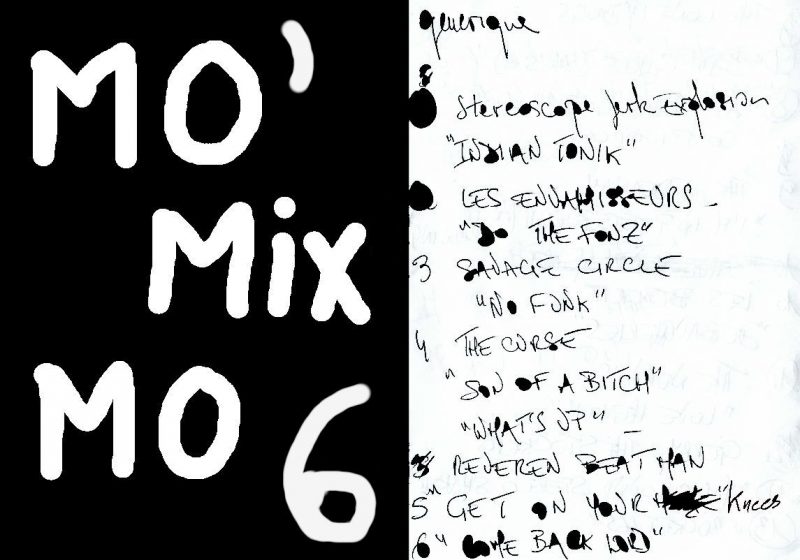 MO'
Mix
MO 6
generique
Stereoscope Jerk Explosion
"INDIAN TONIK"
LES ENVAHISSEURS -
"DO THE FONZ"
3 SAVAGE CIRCLE
"NO FUNK"
4 THE CURSE
"SON OF A BITCH"
"WHAT'S UP?" -
REVEREN BEATMAN
5" GET ON YOUR "Knees
6" COME BACK LORD"